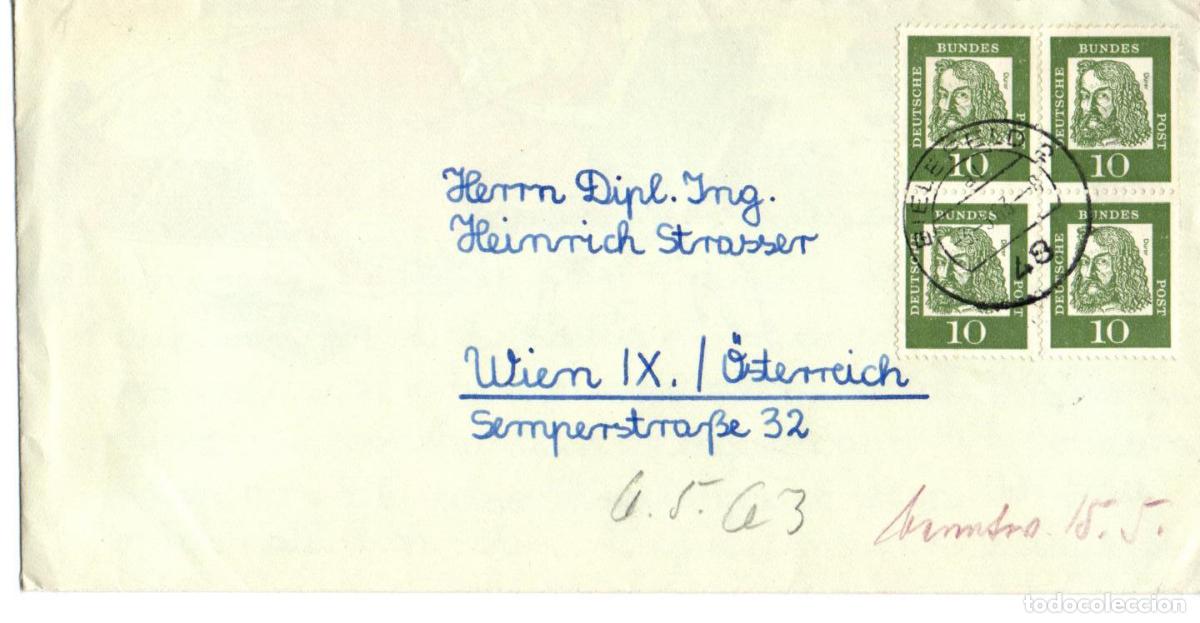 BUNDES
DEUTSCHE
POST
Dürer
10
BUNDES
DEUTSCHE
POST
Dürer
10
BUNDES
DEUTSCHE
POST
Dürer
10
BUNDES
DEUTSCHE
POST
Dürer
10
BIELEFELD 2
48
Herrn Dipl. Ing.
Heinrich Strasser
Wien IX. / Österreich
Semperstraße 32
6.5.63
15.5.
todocoleccion